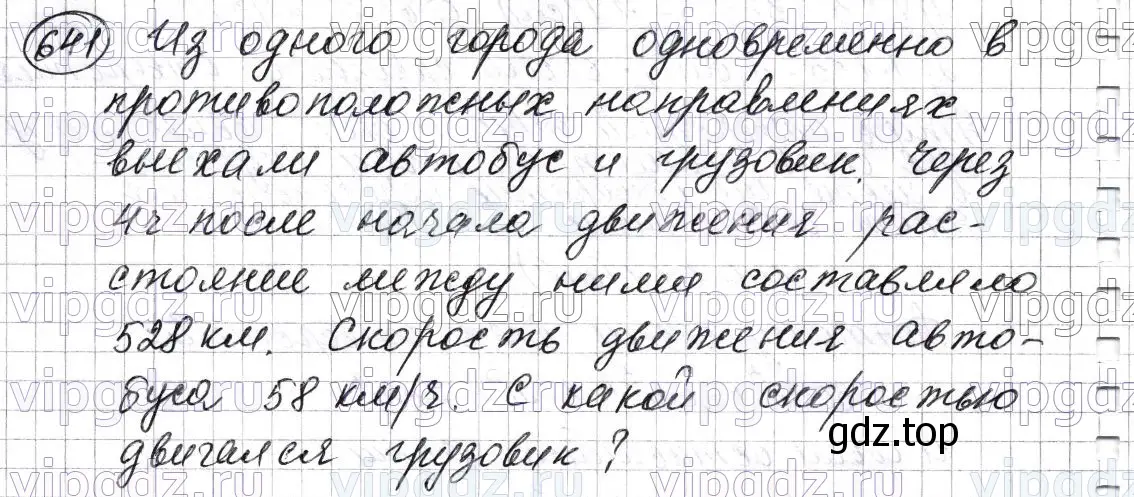 641 Из одного города одновременно в
противоположных направлениях
выехали автобус и грузовик. Через
4ч после начала движения рас-
стояние между ними составляло
528 км. Скорость движения авто-
буса 58 км/ч. С какой скоростью
двигался грузовик?
gdz.top
vipgdz.ru